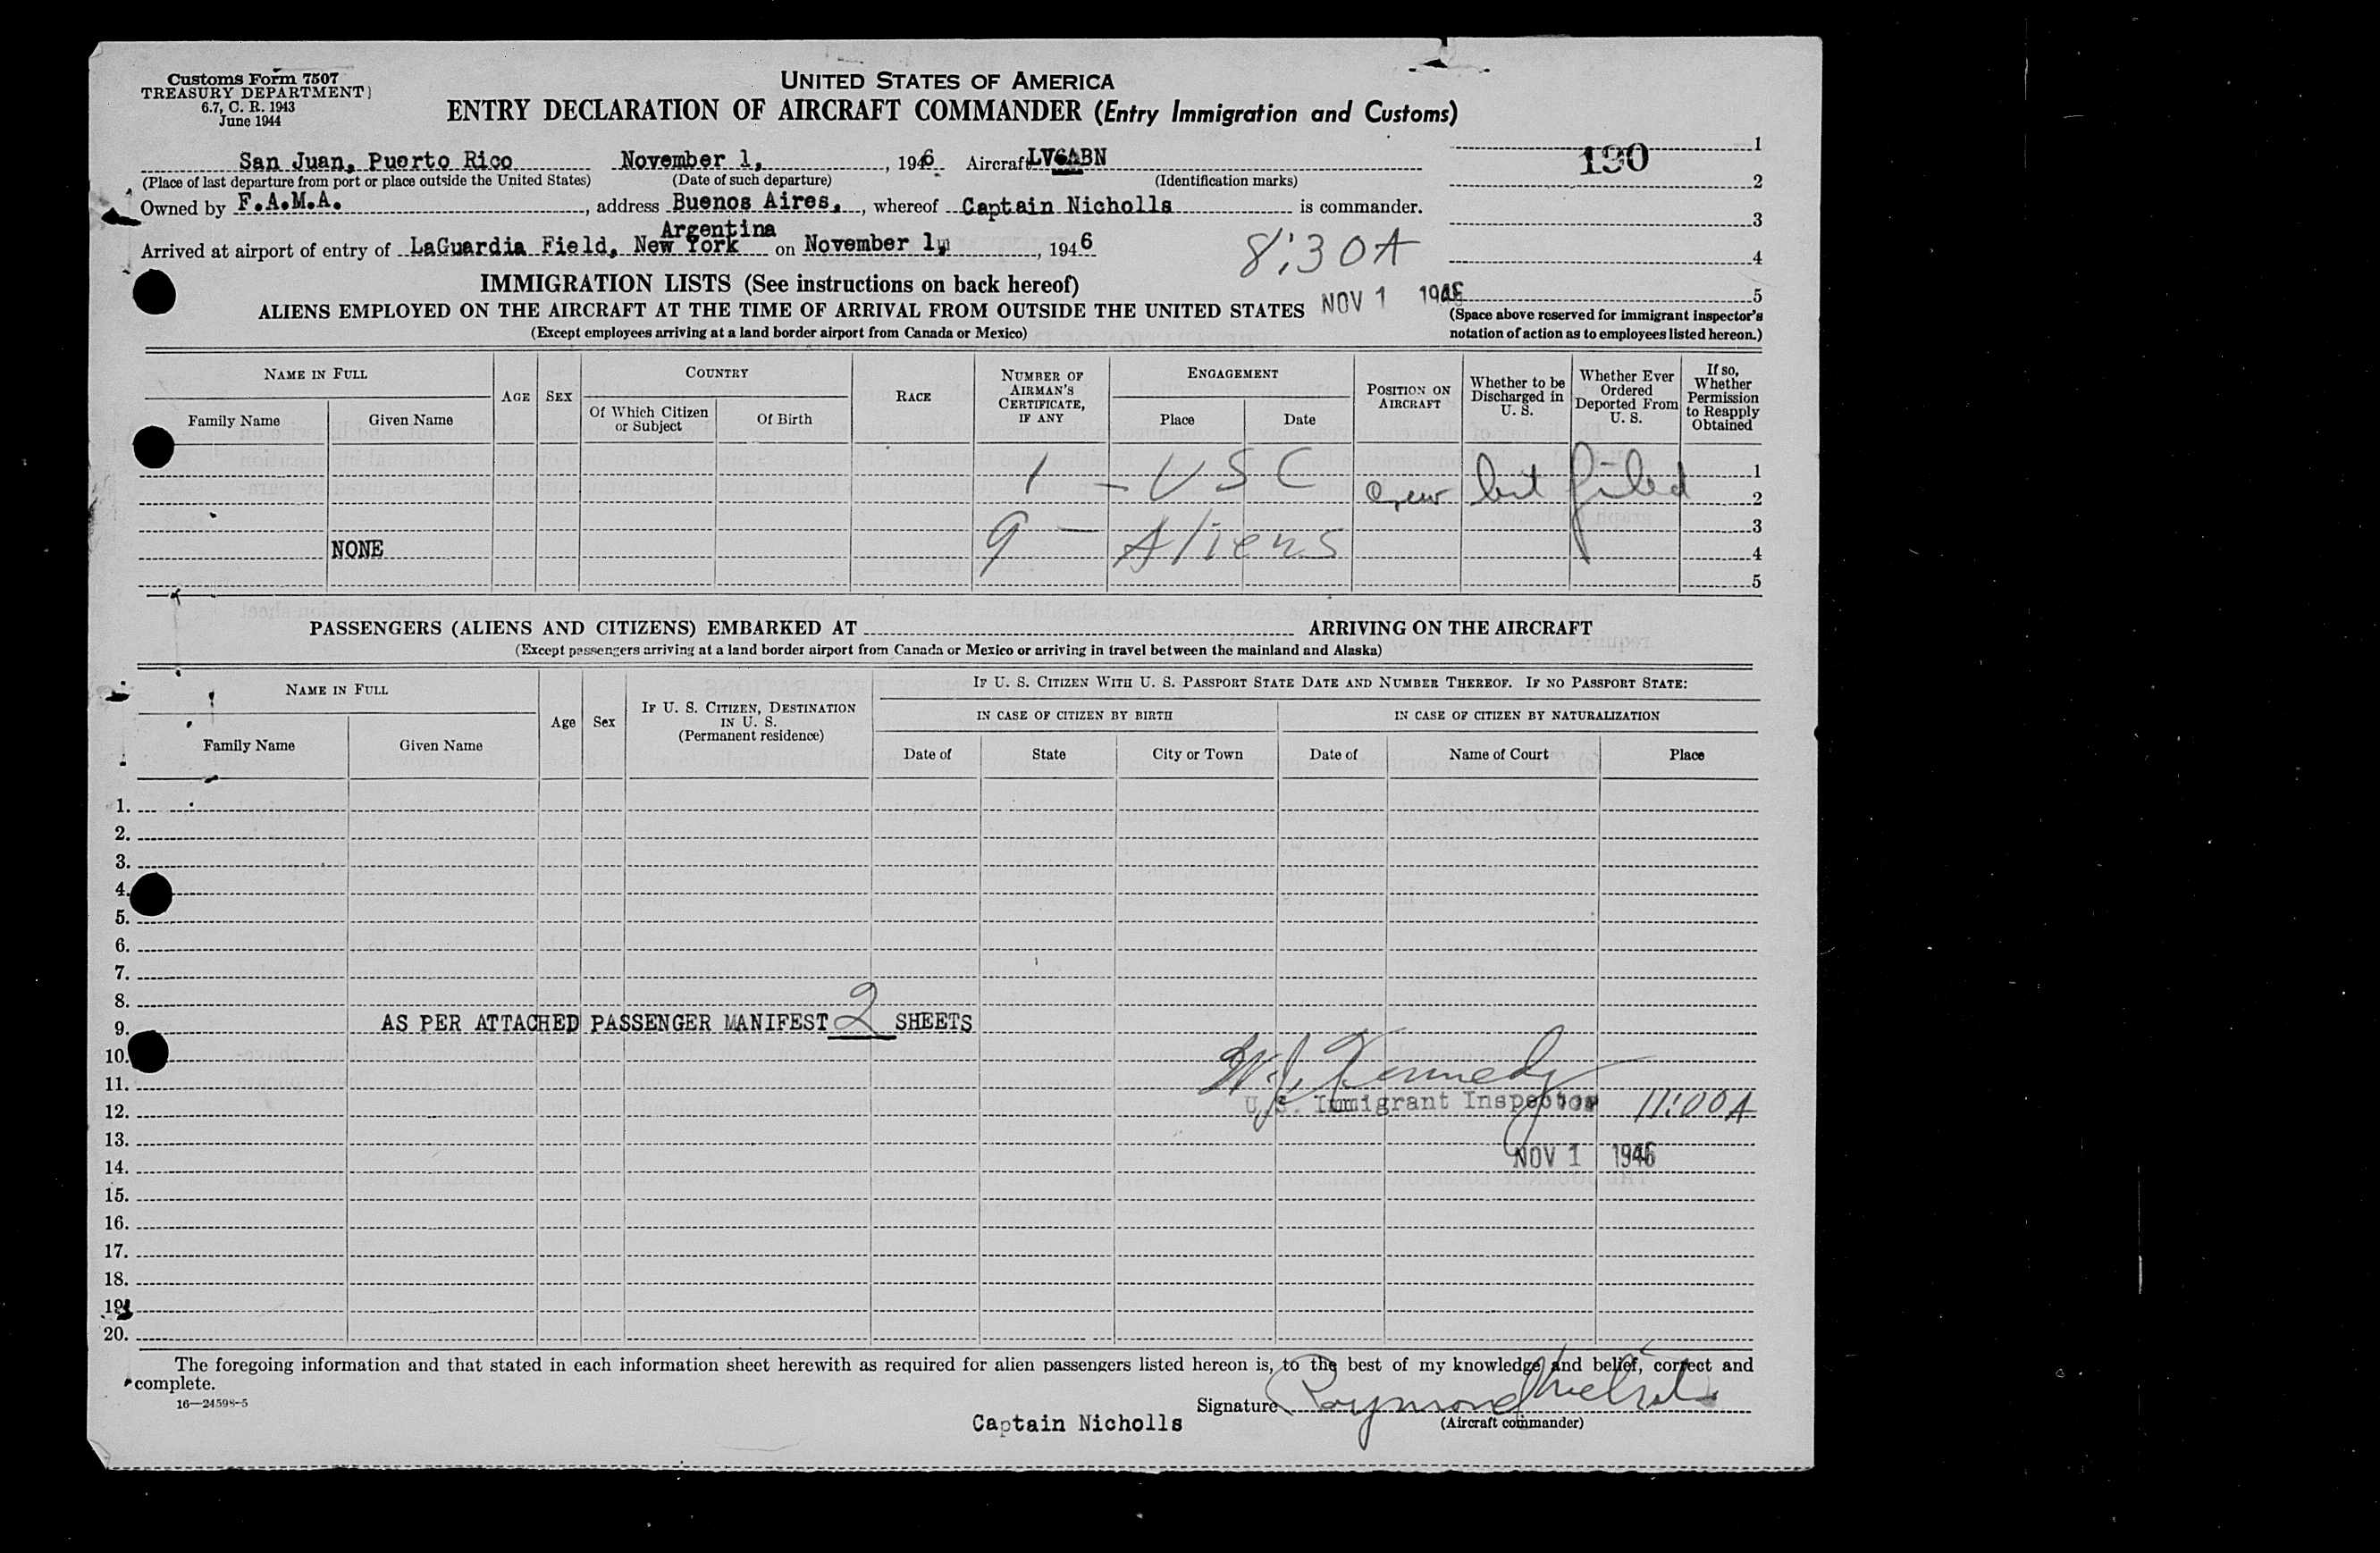 Customs Form 7507
TREASURY DEPARTMENT
6.7, C. R. 1943
June 1944
UNITED STATES OF AMERICA
ENTRY DECLARATION OF AIRCRAFT COMMANDER (Entry Immigration and Customs)
San Juan, Puerto Rico November 1, , 1946 Aircraft
(Place of last departure from port or place outside the United States) (Date of such departure) (Identification marks)
Owned by F.A.M.A. , address Buenos Aires, , whereof Captain Nicholls is commander.
Argentina
Arrived at airport of entry of LaGuardia Field, New York on November 1, , 1946
8:30A
130
1
2
3
4
5
(Space above reserved for immigrant inspector's notation of action as to employees listed hereon.)
IMMIGRATION LISTS (See instructions on back hereof)
ALIENS EMPLOYED ON THE AIRCRAFT AT THE TIME OF ARRIVAL FROM OUTSIDE THE UNITED STATES NOV 1 1946
(Except employees arriving at a land border airport from Canada or Mexico)
NAME IN FULL
Family Name Given Name
AGE SEX
COUNTRY
Of Which Citizen or Subject Of Birth
RACE
NUMBER OF AIRMAN'S CERTIFICATE, IF ANY
ENGAGEMENT
Place Date
POSITION ON AIRCRAFT
Whether to be Discharged in U. S.
Whether Ever Ordered Deported From U. S.
If so, Whether Permission to Reapply Obtained
1 - USC 1
Crew list filed 2
3
NONE 9 - Aliens 4
5
PASSENGERS (ALIENS AND CITIZENS) EMBARKED AT ARRIVING ON THE AIRCRAFT
(Except passengers arriving at a land border airport from Canada or Mexico or arriving in travel between the mainland and Alaska)
NAME IN FULL
Family Name Given Name
Age Sex
IF U. S. CITIZEN, DESTINATION IN U. S. (Permanent residence)
IF U. S. CITIZEN WITH U. S. PASSPORT STATE DATE AND NUMBER THEREOF. IF NO PASSPORT STATE:
IN CASE OF CITIZEN BY BIRTH IN CASE OF CITIZEN BY NATURALIZATION
Date of State City or Town Date of Name of Court Place
1.
2.
3.
4.
5.
6.
7.
8.
9. AS PER ATTACHED PASSENGER MANIFEST 2 SHEETS
10.
11. W. J. Kennedy
12. U. S. Immigrant Inspector 11:00A
13.
14. NOV 1 1946
15.
16.
17.
18.
19.
20.
The foregoing information and that stated in each information sheet herewith as required for alien passengers listed hereon is, to the best of my knowledge and belief, correct and
complete.
16—24598-5
Signature Raymond Nicholls
Captain Nicholls (Aircraft commander)